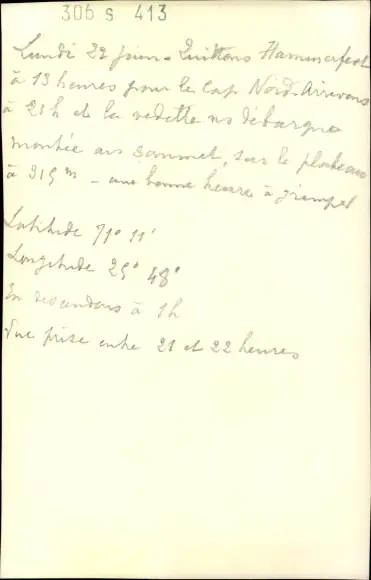 306 S 413
Lundi 22 juin - Quittons Hammerfest
à 13 heures pour le Cap Nord. Arrivons
à 21h et la vedette ns débarque
montée au sommet, sur le plateau
à 315 m - une bonne heure à grimper
Latitude 71° 11'
Longitude 25° 48'
En descendons à 1h
Vue prise entre 21 et 22 heures